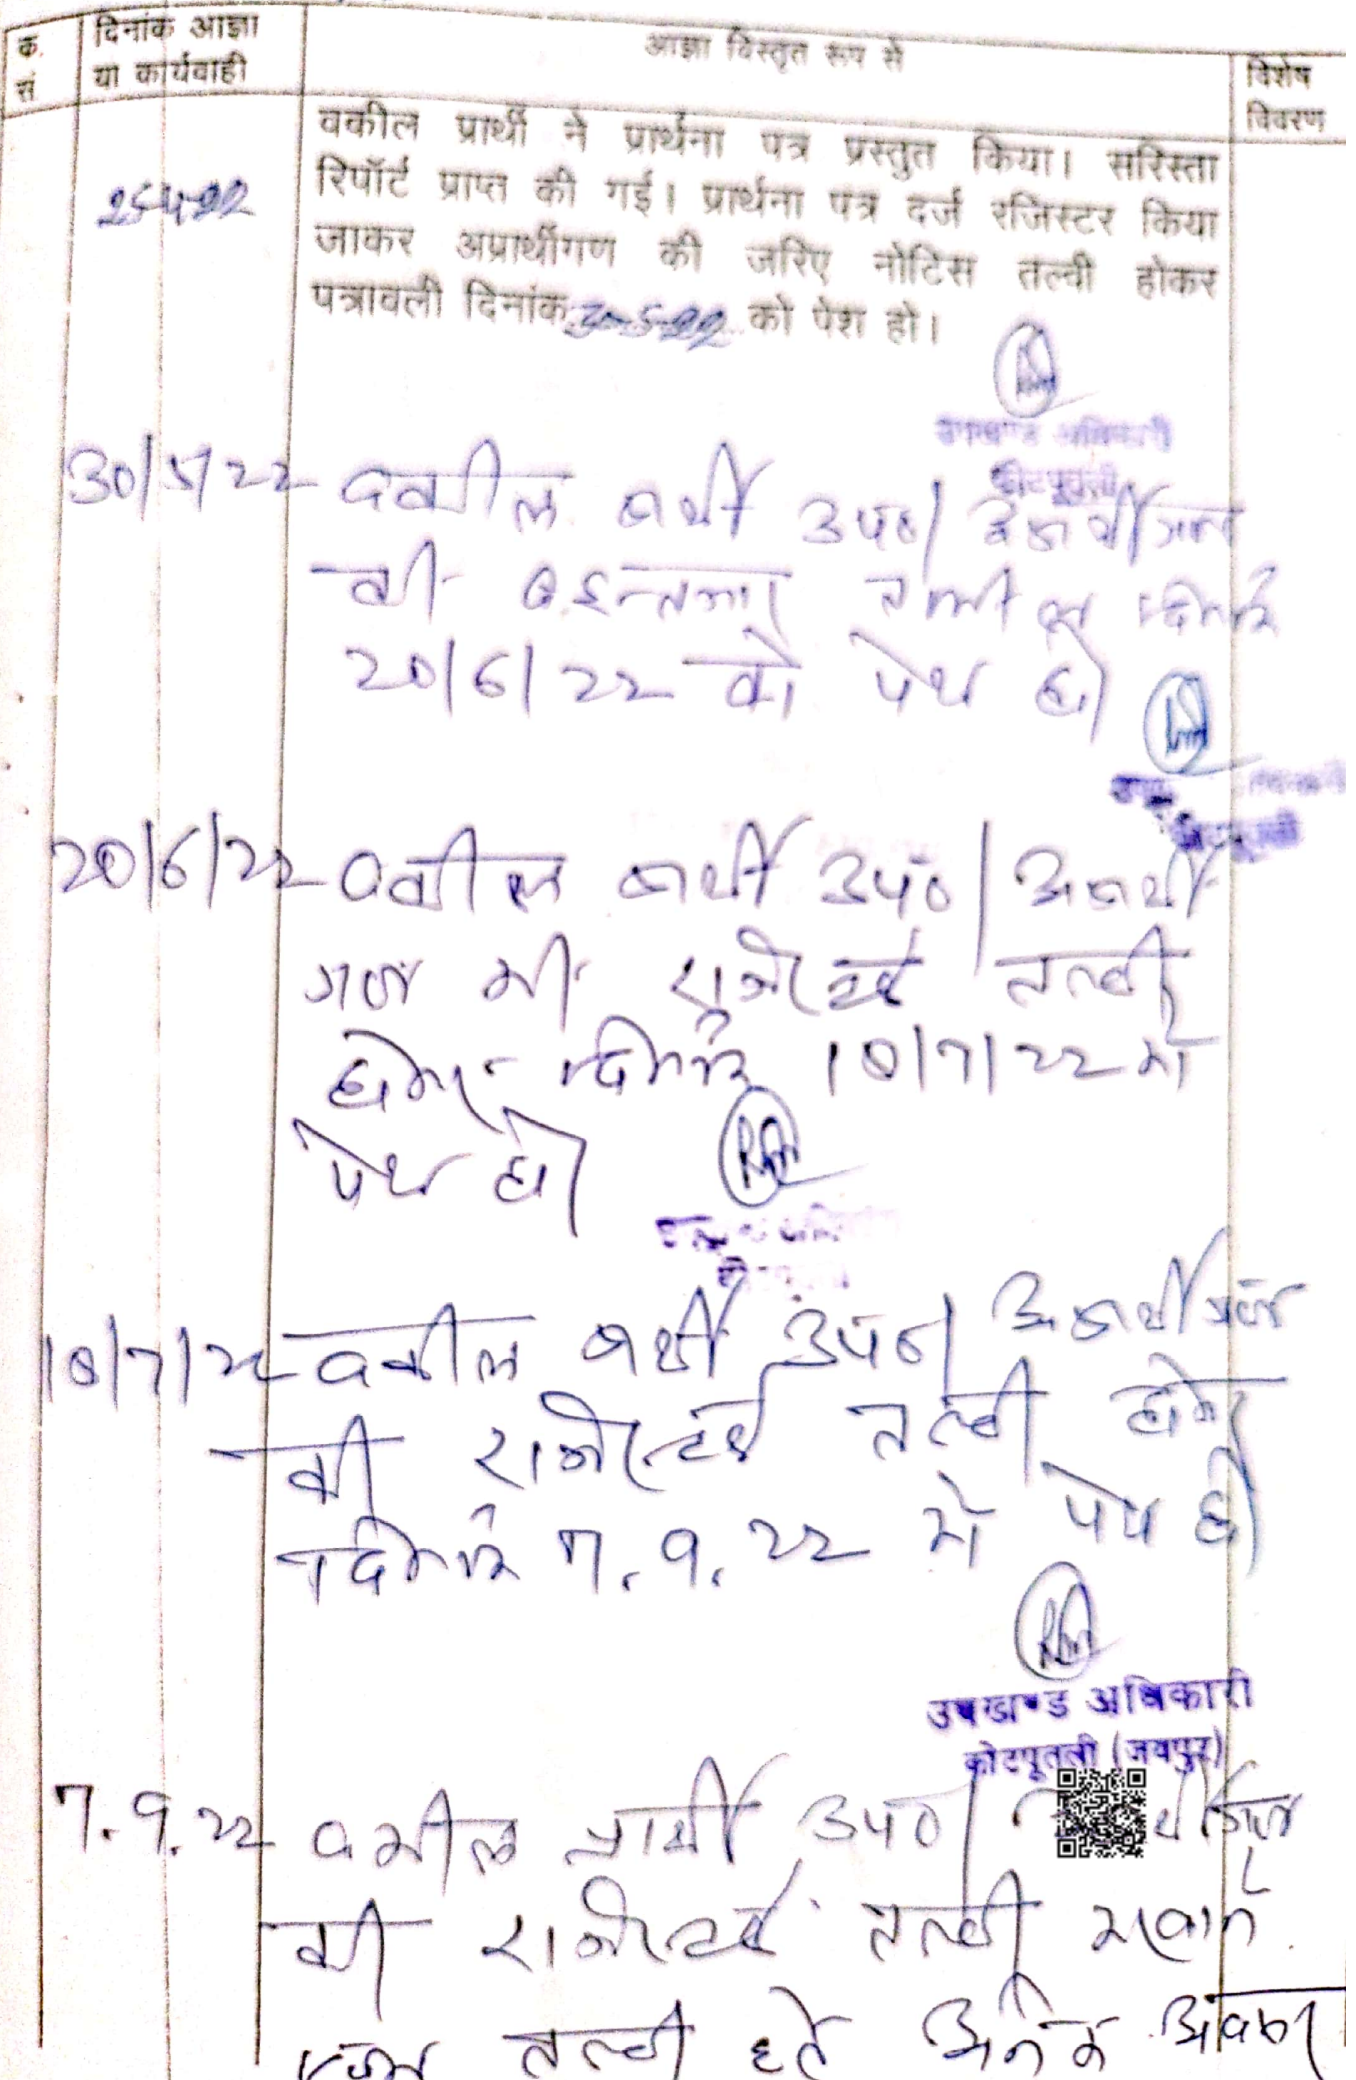 क. सं
दिनांक आज्ञा या कार्यवाही
आज्ञा विस्तृत रूप से
विशेष विवरण
25-4-22
वकील प्रार्थी ने प्रार्थना पत्र प्रस्तुत किया। सरिस्ता
रिपॉर्ट प्राप्त की गई। प्रार्थना पत्र दर्ज रजिस्टर किया
जाकर अप्रार्थीगण की जरिए नोटिस तल्वी होकर
पत्रावली दिनांक 30-5-22 को पेश हो।
उपखण्ड अधिकारी
कोटपूतली
30/5/22 वकील प्रार्थी उप०। अप्रार्थीगण
की तलबी दिनांक
20/6/22 को पेश हो
20/6/22 वकील प्रार्थी उप०। अप्रार्थी
गण की रजिस्टर्ड तल्बी
होकर दिनांक 18/7/22 को
पेश हो
18/7/22 वकील प्रार्थी उप०। अप्रार्थीगण
की रजिस्टर्ड तल्बी होकर
दिनांक 7.9.22 को पेश हो
उपखण्ड अधिकारी
कोटपूतली (जयपुर)
7.9.22 वकील प्रार्थी उप०।
की रजिस्टर्ड तल्बी
तल्बी हेतु अनेक अवसर